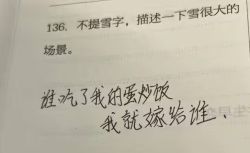 136. 不提雪字，描述一下雪很大的
场景。
谁吃了我的蛋炒饭
我就嫁给谁.